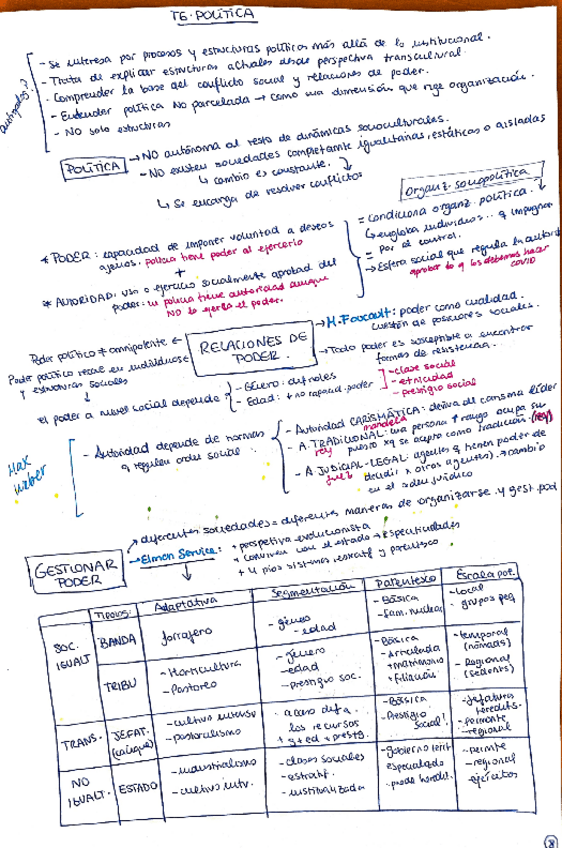 T6. POLÍTICA
- Se interesa por procesos y estructuras políticas más allá de lo institucional.
- Trata de explicar estructuras actuales desde perspectiva transcultural.
- Comprender la base del conflicto social y relaciones de poder.
- Entender política NO parcelada → como una dimensión que rige organización.
- NO solo estructuras
POLÍTICA → NO autónoma al resto de dinámicas socioculturales.
- NO existen sociedades completamente igualitarias, estáticas o aisladas
↳ cambio es constante.
↳ Se encarga de resolver conflictos
Organiz. sociopolítica
= condiciona organiz. política.
↳ engloba individuos
= por el control.
→ Esfera social que regula la autorid
aprobar lo q los debemos hacer
COVID
* PODER: capacidad de imponer voluntad a deseos
ajenos. policía tiene poder al ejercerlo
+
* AUTORIDAD: uso o ejercicio socialmente aprobad del
poder: la policía tiene autoridad aunque
NO lo ejerza el poder.
RELACIONES DE PODER.
→ M. Foucault: poder como cualidad.
cuestión de posiciones sociales.
→ Todo poder es susceptible a encontrar
formas de resistencia.
Poder político ≠ omnipotente ←
Poder político recae en individuos
y estructuras sociales
↓
el poder a nivel social depende
- Género: dif roles
- Edad: + no capacid. poder
- clase social
- etnicidad
- prestigio social
Max Weber
- Autoridad depende de normas
q regulen orden social
- Autoridad CARISMÁTICA: deriva del carisma líder
mandela
- A. TRADICIONAL: una persona + rango ocupa su
rey puesto xq se acepta como tradición (rey)
- A. JUDICIAL-LEGAL: agentes q tienen poder de
juez decidir x otros agentes) → cambio
en el orden jurídico
GESTIONAR PODER
→ diferentes sociedades = diferentes maneras de organizarse y gest. pod
→ Elman Service: + perspectiva evolucionista
+ conviven con el estado → especificidades
+ 4 pios sistemas estratif y parentesco
TIPOLOG: Adaptativa Segmentación Parentesco Escala pot.
SOC. IGUALT
BANDA forrajero - género - edad - Básica - Fam. nuclear - local - grupos peq
TRIBU - Horticultura - Pastoreo - género - edad - prestigio soc. - Básica - Articulada + matrimonio + filiación - temporal (nómads) - Regional (sedents)
TRANS. JEFAT. (cacique) - cultivo intensivo - pastoralismo - acceso dif a los recursos + g + ed + prestg. - Básica - Prestigio social! - jefaturas heredits. - permnte - regional
NO IGUALT. ESTADO - industrialismo - cultivo intv. - clases sociales - estratif. - institualizada - gobierno especializado - puede heredit. - permte - regional ejércitos
8